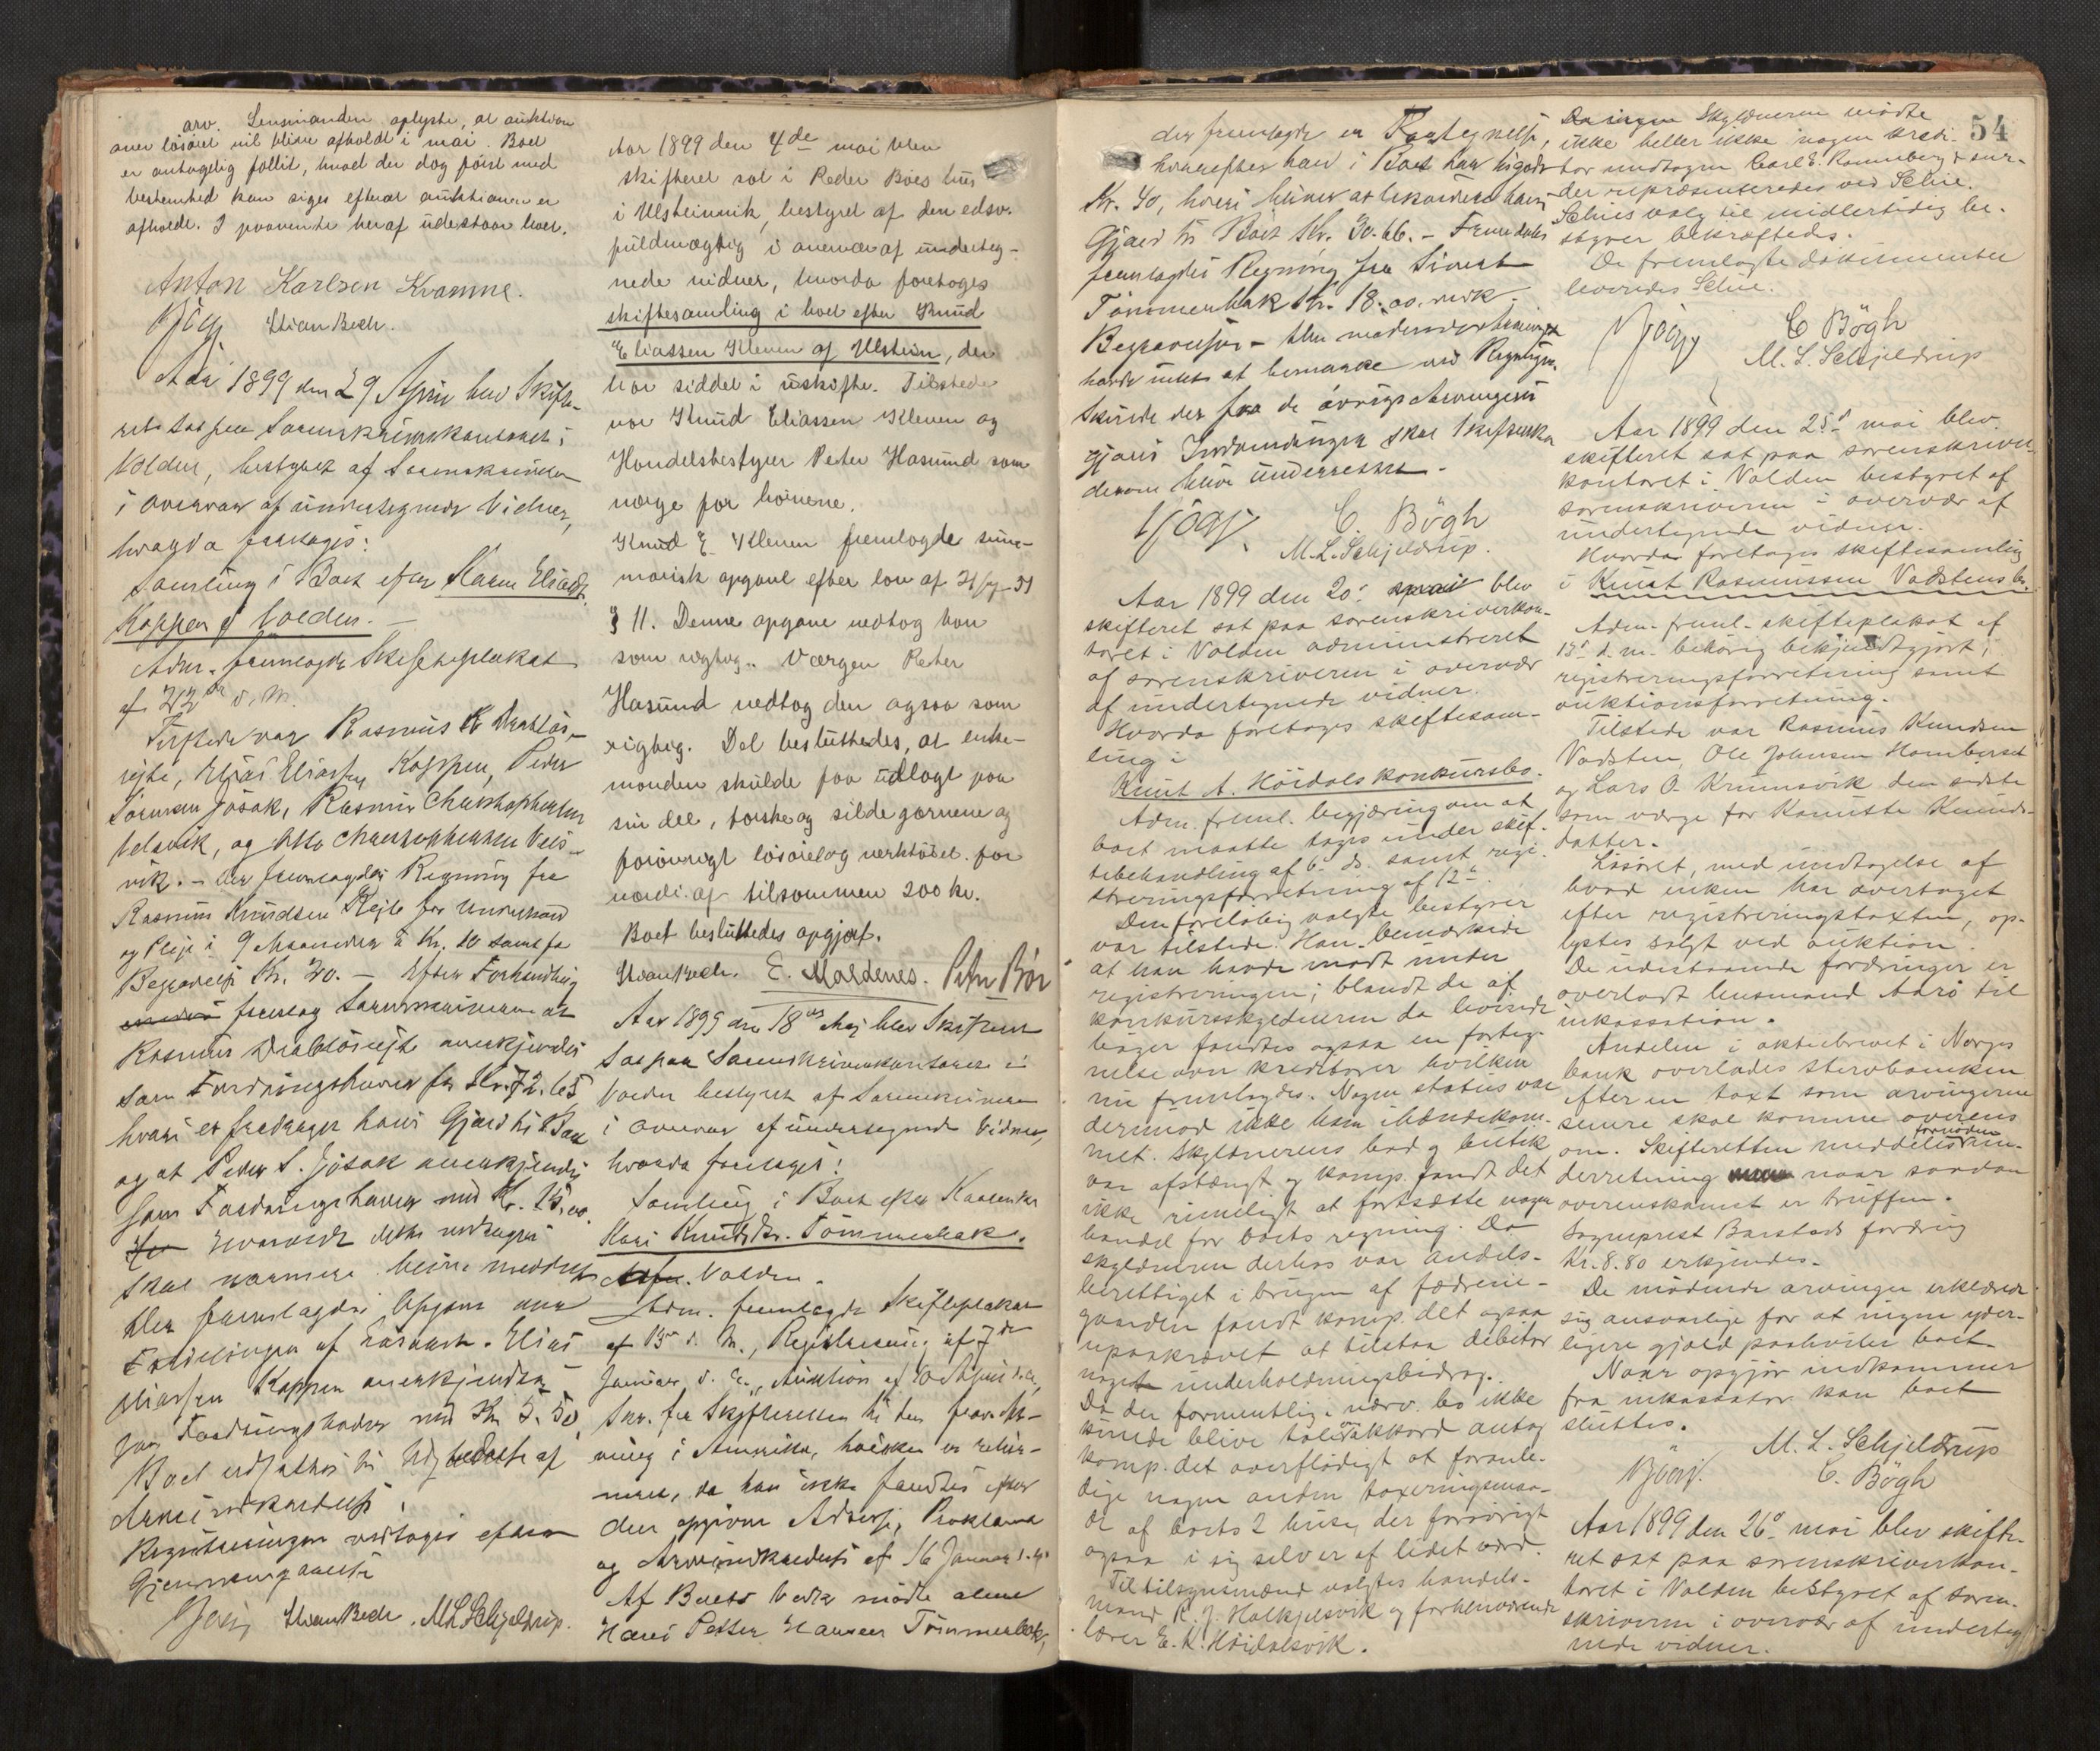 arv. Lensmanden oplyste, at auktion
over løsøret vil blive afholdt i mai. Boet
er antagelig fallit, hvad der dog først med
bestemthed kan siges efterat auktionen er
afholdt. I paavente heraf udestaar boet.
Anton Karlsen Kvamme.
Stian Bech.
Aar 1899 den 29 April blev Skifte-
ret sat paa Sorenskriverkontoret i
Volden, bestyret af Sorenskriveren
i Overvær af undertegnede Vidner,
hvorda foretoges:
Samling i Boet efter Karen Eliasdt.
Koppen af Volden.
Adm. fremlagde Skifteplakat
af 22de d. M.
Tilstede var Rasmus K
Elias Eliassen Koppen, Peder
Jøsak, Rasmus Christophersen
Velsvik, og Otto Christophersen Vels-
vik. – Der fremlagdes Regning fra
Rasmus Knudsen for Underhold
og Pleje i 9 Maaneder à Kr. 10 samt for
Begravelse Kr. 30. – Efter Forhandling
foreslog Sorenskriveren at
Rasmus anerkjendes
som Fordringshaver for Kr. 72.65
hvori er fradraget hans Gjæld til Boet
og at Peder S. Jøsak anerkjendes
som Fordringshaver med Kr. 15.00.
Hvorvidt dette vedtages
skal nærmere blive meddelt
Der fremlagdes Opgave over
Fordelingen af Løsøret. Elias
Eliassen Koppen anerkjendtes
som Fordringshaver med Kr. 5.50
Boet udsættes til Udstedelse af
Arveindkaldelse.
Registreringen vedtages efter
Gjennemgaaelse
Stian Bech. M L Schjeldrup.
Aar 1899 den 4de mai blev
skifteret sat i Peder Bøes hus
i Ulsteinvik, bestyret af den edsv.
fuldmægtig i overvær af underteg-
nede vidner, hvorda foretoges
skiftesamling i boet efter Knud
Eliassen Kleven af Ulstein, der
har siddet i uskifte. Tilstede
var Knud Eliassen Kleven og
Handelsbestyrer Peter Hasund som
værge for børnene.
Knud E. Kleven fremlagde sum-
marisk opgave efter lov af
§ 11. Denne opgave vedtog han
som rigtig. Værgen Peter
Hasund vedtog den ogsaa som
rigtig. Det besluttedes, at enke-
manden skulde faa udlagt paa
sin del, torske og silde garnene og
forøvrigt løsøre og verktøiet for
værdi af tilsammen 200 kr.
Boet besluttedes opgjort.
Stian Bech. E. Maldenes. Peter Bøe
Aar 1899 den 18de Maj blev Skifteret
sat paa Sorenskriverkontoret i
Volden bestyret af Sorenskriveren
i Overvær af undertegnede Vidner,
hvorda foretoges:
Samling i Boet efter
Kari Knudsdtr. Tømmerbak.
Volden.
Adm. fremlagde Skifteplakat
af 13de d. M., Registrering af 7de
Januar d. A., Auktion af 20 April d. A,
Skr. fra Skifteretten til den fravær. Ar-
ving i Amerika, hvilken er retur-
neret, da han ikke fandtes efter
den opgivne Adresse, Proklama
og Arveindkaldelse af 16 Januar d. A.
Af Boets Vedk. mødte alene
Hans Petter Hansen Tømmerbak,
der fremlagde en Fortegnelse,
hvorefter han i Boet har tilgode
Kr. 40, hvori bliver at likvidere hans
Gjæld til Boet Kr. 30.66. – Fremdeles
fremlagdes Regning fra Sivert
Tømmerbak Kr. 18.00. vedk.
Begravelse – Den mødende Arving
havde intet at bemærke ved Regningen.
Skulde der fra de øvrige Arvinger
gjøres Indvendinger skal Skifteretten
derom blive underrettet.
C. Bøgh
M. L. Schjeldrup.
Aar 1899 den 20de mai blev
skifteret sat paa sorenskriverkon-
toret i Volden administreret
af sorenskriveren i overvær
af undertegnede vidner.
Hvorda foretoges skiftesam-
ling i
Knut A. Høidals konkursbo.
Adm. freml. begjæring om at
boet maatte tages under skif-
tebehandling af 6. ds. samt regi-
streringsforretning af 12.
Den foreløbig valgte bestyrer
var tilstede. Han bemærkede
at han havde mødt under
registreringen; blandt de af
konkursskyldneren da leverede
bøger fandtes ogsaa en forteg-
nelse over kreditorer hvilken
nu fremlagdes. Nogen status var
derimod ikke ham ihændekom-
met. Skyldnerens bod og butik
var afstængt og komp. fandt det
ikke rimeligt at fortsætte nogen
handel for boets regning. Da
skyldneren derhos var andels-
berettiget i brugen af fædrene-
gaarden fandt komp. det ogsaa
upaakrævet at tilstaa debitor
noget underholdningsbidrag.
Da der formentlig i nærv. bo ikke
kunde blive tale om akkord antog
komp. det overflødigt at foranle-
dige nogen anden taxeringsmaa-
de af boets 2 huse, der forøvrigt
ogsaa i sig selv er af lidet værd.
Til tilsynsmænd valgtes handels-
mand R. J. Halkjelsvik og forhenværende
lærer E. K. Høidalsvik.
54
Da ingen Skyldneren mødte
ikke heller ikke nogen kredi-
tor undtagen Carl E. Rønneberg & søn-
der repræsenteredes ved Schie.
Schies valg til midlertidig be-
styrer bekræftedes.
De fremlagte dokumenter
leveredes Schie.
C Bøgh
M. L. Schjeldrup
Aar 1899 den 25de mai blev
skifteret sat paa sorenskriver-
kontoret i Volden bestyret af
sorenskriveren i overvær af
undertegnede vidner.
Hvorda foretoges skiftesamling
i Knut Rasmussen Vadstens bo.
Adm. freml. skifteplakat af
13de d. m. behørig bekjendtgjort;
registreringsforretning samt
auktionsforretning.
Tilstede var Rasmus Knudsen
Vadsten, Ole Johnsen Hamberset
og Lars O. Krumsvik den sidste
som værge for Kanutte Knuds-
datter.
Løsøret, med undtagelse af
hvad enken har overtaget
efter registreringstaxten, op-
lystes solgt ved auktion.
De udestaaende fordringer er
overladt lensmand Aarø til
inkassation.
Andelen i aktiebrevet i Norges
bank overlades stervboenken
efter en taxt som arvingerne
senere skal komme overens
om. Skifteretten meddeles fornøden un-
derretning naar saadan
overenskomst er truffen.
Sogneprest Barstads fordring
Kr. 8.80 erkjendes.
De mødende arvinger erklærede
sig ansvarlige for at ingen yder-
ligere gjæld paahviler boet.
Naar opgjør indkommer
fra inkassator kan boet
sluttes.
M. L. Schjeldrup
C. Bøgh
Aar 1899 den 26de mai blev skifte-
ret sat paa sorenskriverkon-
toret i Volden bestyret af soren-
skriveren i overvær af underteg-
nede vidner.